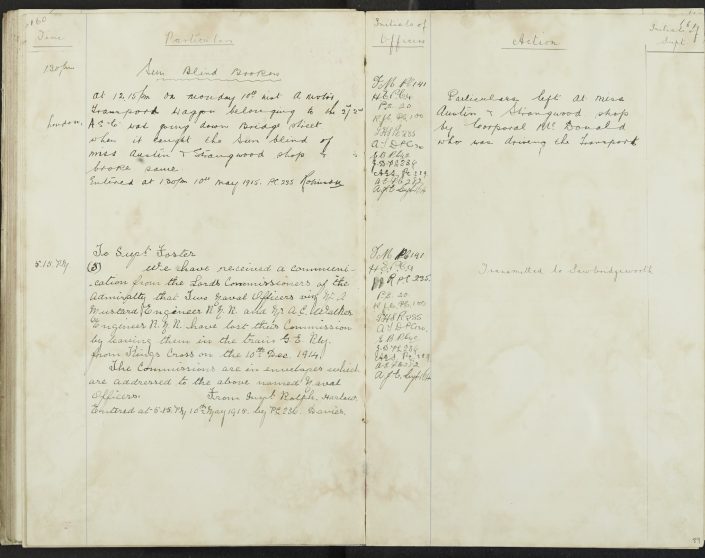 160
Time
Particulars
130pm
Sun Blind Broken
at 12.15pm on monday 10th inst A motor
Transport Waggon belonging to the
London.
A.S.C. was going down Bridge Street
when it caught the Sun blind of
miss Austin & Strangwood shop &
broke same
Entered at 130pm 10th may 1915. PC 235 Robinson
5.15 PM
To Supt Foster
(S) We have received a communi-
cation from the Lords Commissioners of the
Admiralty that Two Naval Officers viz Mr A
Mustard Engineer R.N.R. and Mr A.C. Walker
Engineer R.N.R. have lost their Commission
by leaving them in the train G.E. Rly.
from Kings Cross on the 10th Dec. 1914.
The Commissions are in envelopes which
are addressed to the above named Naval
Officers. From Supt Ralph. Harlow
Entered at 5.15 PM 10th May 1915. by PC 236. Davies.
Initials of
Officers
PC 141
PC 20
PC 100
Action
Particulars left at miss
Austin & Strangwood shop
by Corporal Mc Donald
who was driving the Transport
PC 141
R PC 235.
PC 20
PC 100
Transmitted to Sawbridgeworth
Initials of
Supt